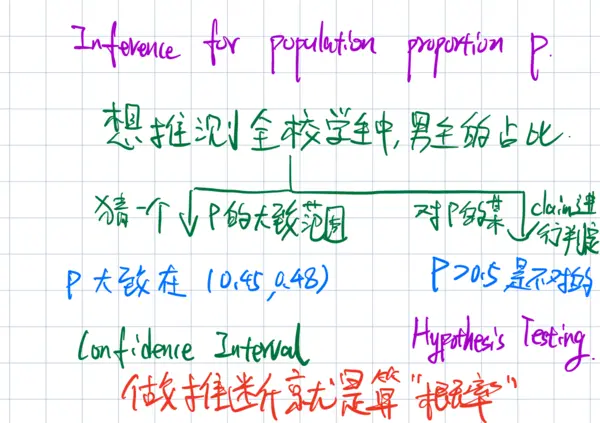 Inference for population proportion p.
想推测全校学生中,男生的占比.
猜一个 P的大致范围
对P的某 claim进行判定
P大致在 (0.45,0.48)
P>0.5,是不对的
Confidence Interval
Hypothesis Testing.
做推断就是算"概率"